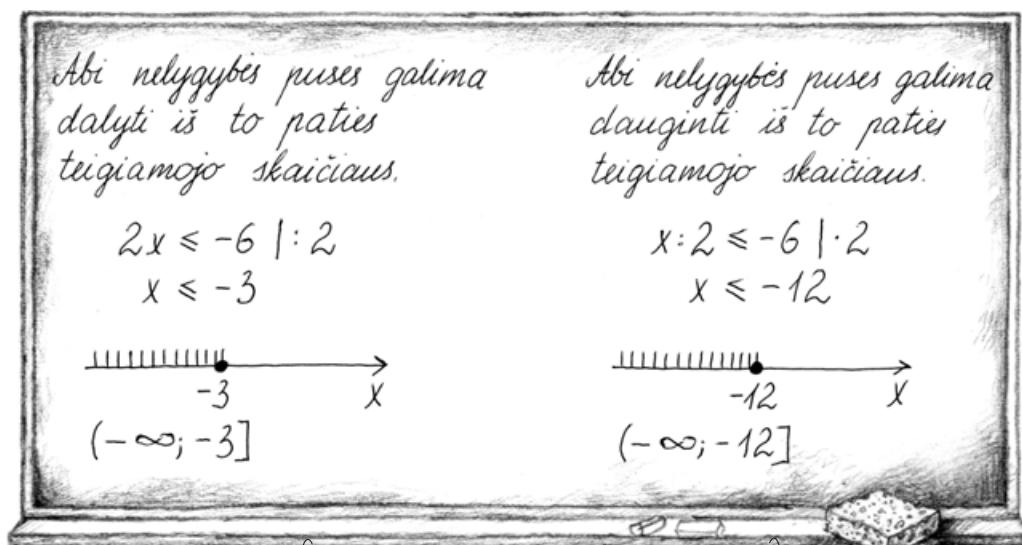 Abi nelygybės puses galima
dalyti iš to paties
teigiamojo skaičiaus.
2x ⩽ -6 | : 2
x ⩽ -3
-3
x
(-∞; -3]
Abi nelygybės puses galima
dauginti iš to paties
teigiamojo skaičiaus.
x : 2 ⩽ -6 | · 2
x ⩽ -12
-12
x
(-∞; -12]